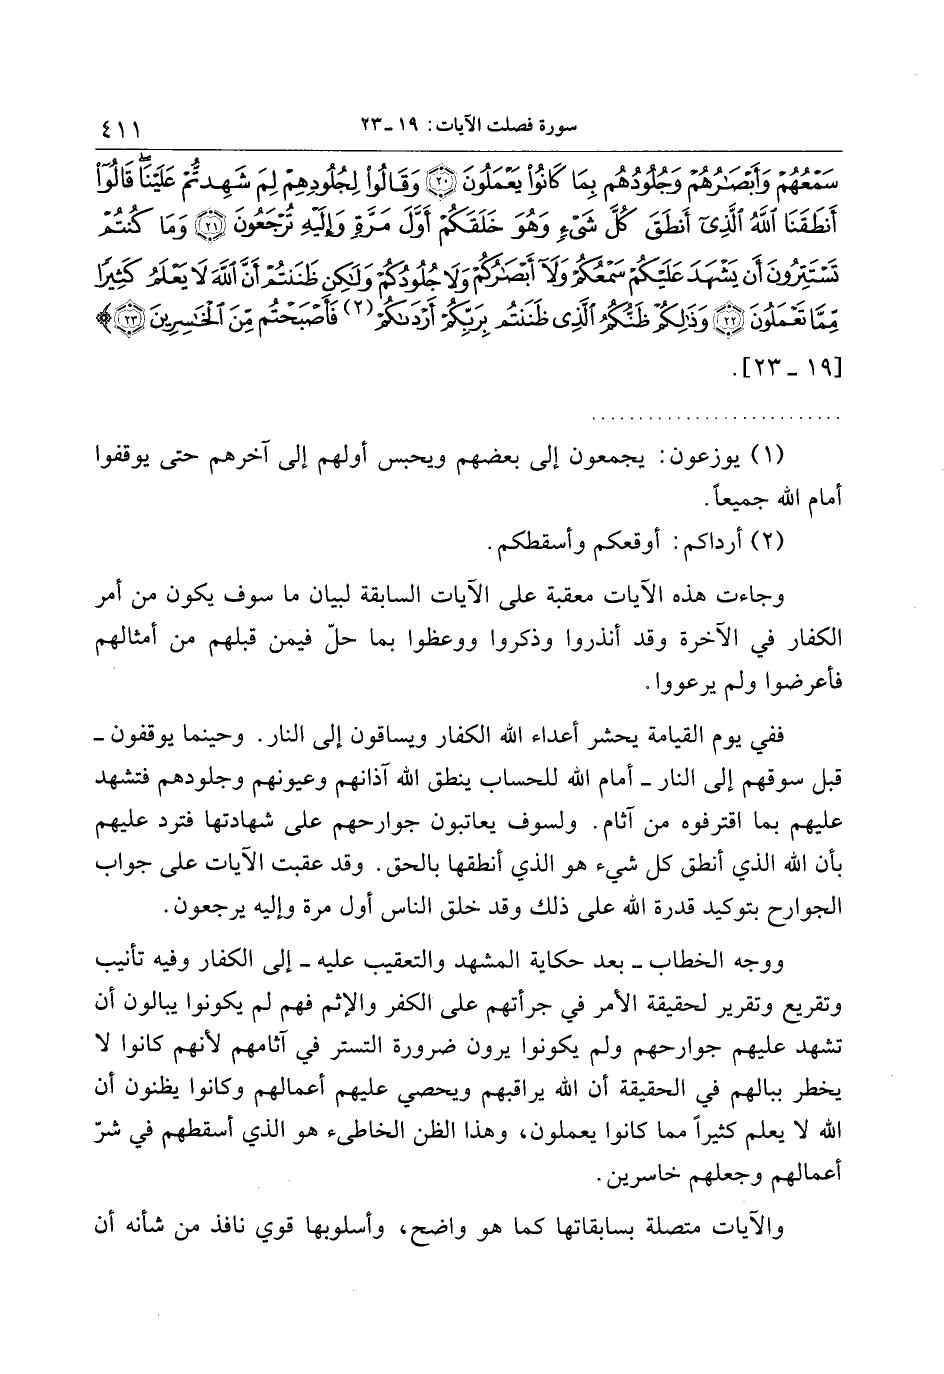 سورة فصلت الآيات: ١٩ـ٢٣ ٤١١
سَمْعُهُمْ وَأَبْصَٰرُهُمْ وَجُلُودُهُم بِمَا كَانُوا۟ يَعْمَلُونَ ۝٢٠ وَقَالُوا۟ لِجُلُودِهِمْ لِمَ شَهِدتُّمْ عَلَيْنَا ۖ قَالُوٓا۟
أَنطَقَنَا ٱللَّهُ ٱلَّذِىٓ أَنطَقَ كُلَّ شَىْءٍ وَهُوَ خَلَقَكُمْ أَوَّلَ مَرَّةٍ وَإِلَيْهِ تُرْجَعُونَ ۝٢١ وَمَا كُنتُمْ
تَسْتَتِرُونَ أَن يَشْهَدَ عَلَيْكُمْ سَمْعُكُمْ وَلَآ أَبْصَٰرُكُمْ وَلَا جُلُودُكُمْ وَلَٰكِن ظَنَنتُمْ أَنَّ ٱللَّهَ لَا يَعْلَمُ كَثِيرًا
مِّمَّا تَعْمَلُونَ ۝٢٢ وَذَٰلِكُمْ ظَنُّكُمُ ٱلَّذِى ظَنَنتُم بِرَبِّكُمْ أَرْدَىٰكُمْ (٢) فَأَصْبَحْتُم مِّنَ ٱلْخَٰسِرِينَ ۝٢٣ ﴾
[١٩ ـ ٢٣].
(١) يوزعون: يجمعون إلى بعضهم ويحبس أولهم إلى آخرهم حتى يوقفوا
أمام الله جميعاً.
(٢) أرداكم: أوقعكم وأسقطكم.
وجاءت هذه الآيات معقبة على الآيات السابقة لبيان ما سوف يكون من أمر
الكفار في الآخرة وقد أنذروا وذكروا ووعظوا بما حلّ فيمن قبلهم من أمثالهم
فأعرضوا ولم يرعووا.
ففي يوم القيامة يحشر أعداء الله الكفار ويساقون إلى النار. وحينما يوقفون ـ
قبل سوقهم إلى النار ـ أمام الله للحساب ينطق الله آذانهم وعيونهم وجلودهم فتشهد
عليهم بما اقترفوه من آثام. ولسوف يعاتبون جوارحهم على شهادتها فترد عليهم
بأن الله الذي أنطق كل شيء هو الذي أنطقها بالحق. وقد عقبت الآيات على جواب
الجوارح بتوكيد قدرة الله على ذلك وقد خلق الناس أول مرة وإليه يرجعون.
ووجه الخطاب ـ بعد حكاية المشهد والتعقيب عليه ـ إلى الكفار وفيه تأنيب
وتقريع وتقرير لحقيقة الأمر في جرأتهم على الكفر والإثم فهم لم يكونوا يبالون أن
تشهد عليهم جوارحهم ولم يكونوا يرون ضرورة التستر في آثامهم لأنهم كانوا لا
يخطر ببالهم في الحقيقة أن الله يراقبهم ويحصي عليهم أعمالهم وكانوا يظنون أن
الله لا يعلم كثيراً مما كانوا يعملون، وهذا الظن الخاطىء هو الذي أسقطهم في شرّ
أعمالهم وجعلهم خاسرين.
والآيات متصلة بسابقاتها كما هو واضح، وأسلوبها قوي نافذ من شأنه أن